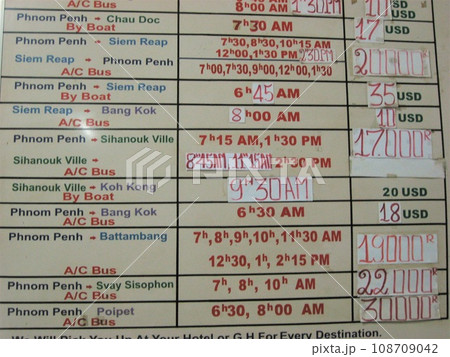 8h00 AM 1h30 PM 10 USD
Phnom Penh - Chau Doc
By Boat
7h30 AM
17 USD
Phnom Penh - Siem Reap
7h30,8h30,10h15 AM
12h00,1h30 PM 7h30AM
20000R
Siem Reap - Phnom Penh
A/C Bus
7h00,7h30,9h00,12h00,1h30
Phnom Penh - Siem Reap
By Boat
6h45 AM
35 USD
Siem Reap - Bang Kok
A/C Bus
8h00 AM
10 USD
Phnom Penh - Sihanouk Ville
7h15 AM,1h30 PM
17000R
Sihanouk Ville -
A/C Bus
8h45AM 11h15AM 2h30 PM
Sihanouk Ville - Koh Kong
By Boat
9h30AM
20 USD
Phnom Penh - Bang Kok
A/C Bus
6h30 AM
18 USD
Phnom Penh - Battambang
A/C Bus
7h,8h,9h,10h,11h30 AM
12h30, 1h, 2h15 PM
19000R
Phnom Penh - Svay Sisophon
A/C Bus
7h, 8h, 10h AM
22000R
Phnom Penh - Poipet
A/C Bus
6h30, 8h00 AM
30000R
We Will Pick You Up At Your Hotel or G H For Every Destination.
PIXTA
108709042